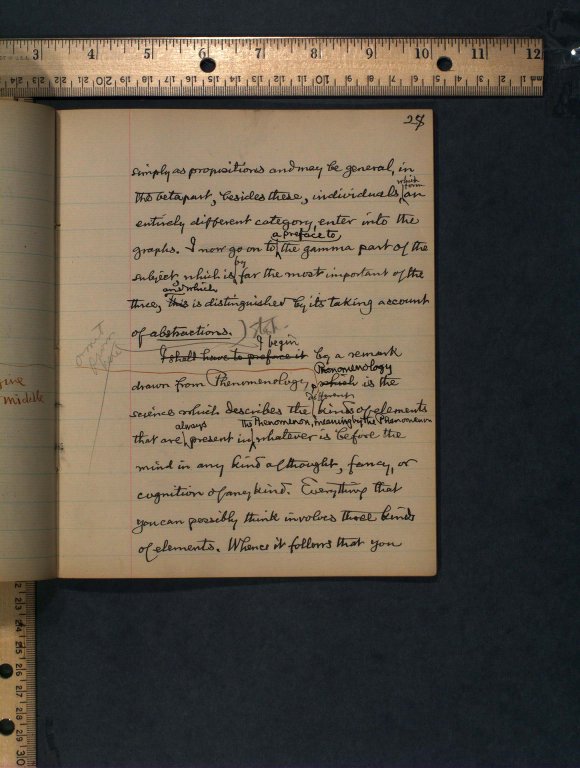 3 4 5 6 7 8 9 10 11 12
27
simply as propositions and may be general, in
which form
this beta part, besides these, individuals, an
entirely different category, enter into the
a preface to,
graphs. I now go on to the gamma part of the
by
subject which is far the most important of the
and which
three, this is distinguished by its taking account
of abstractions.
I begin
I shall have to preface it by a remark
Phenomenology
drawn from Phenomenology, which is the
different
science which describes the kinds of elements
always the Phenomenon, meaning by the Phenomenon
that are present in whatever is before the
mind in any kind of thought, fancy, or
cognition of any kind. Everything that
you can possibly think involves three kinds
of elements. Whence it follows that you
middle